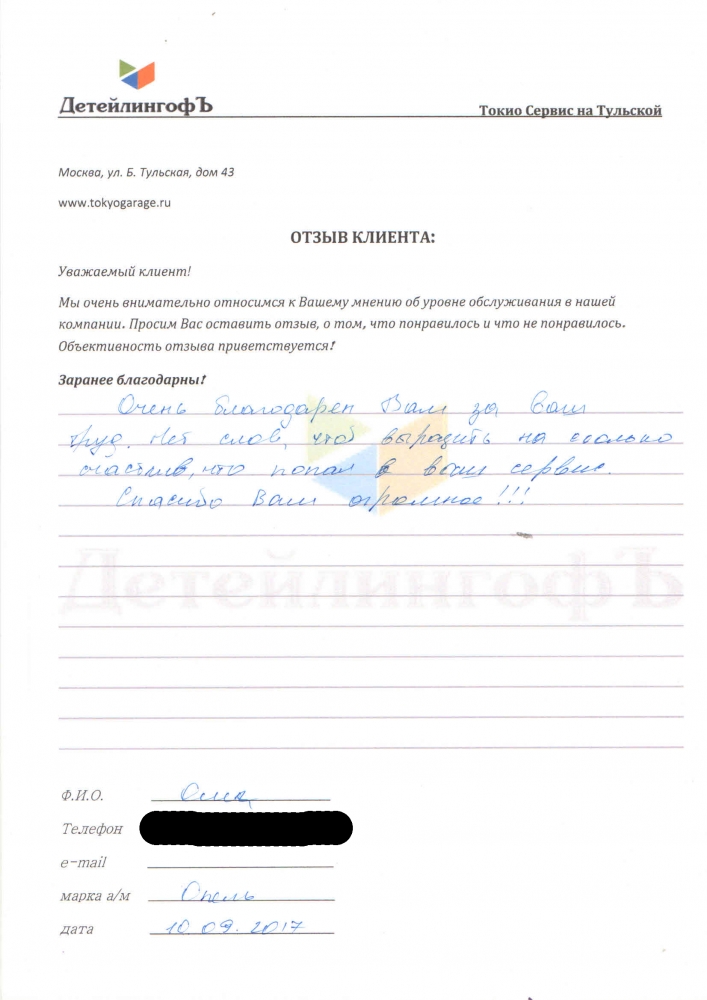 ДетейлингофЪ
Токио Сервис на Тульской
Москва, ул. Б. Тульская, дом 43
www.tokyogarage.ru
ОТЗЫВ КЛИЕНТА:
Уважаемый клиент!
Мы очень внимательно относимся к Вашему мнению об уровне обслуживания в нашей
компании. Просим Вас оставить отзыв, о том, что понравилось и что не понравилось.
Объективность отзыва приветствуется!
Заранее благодарны!
Очень благодарен Вам за ваш
труд. Нет слов, чтоб выразить на сколько
счастлив, что попал в ваш сервис.
Спасибо Вам огромное!!!
ДетейлингофЪ
Ф.И.О.
Телефон
e-mail
марка а/м Опель
дата 10.09.2017